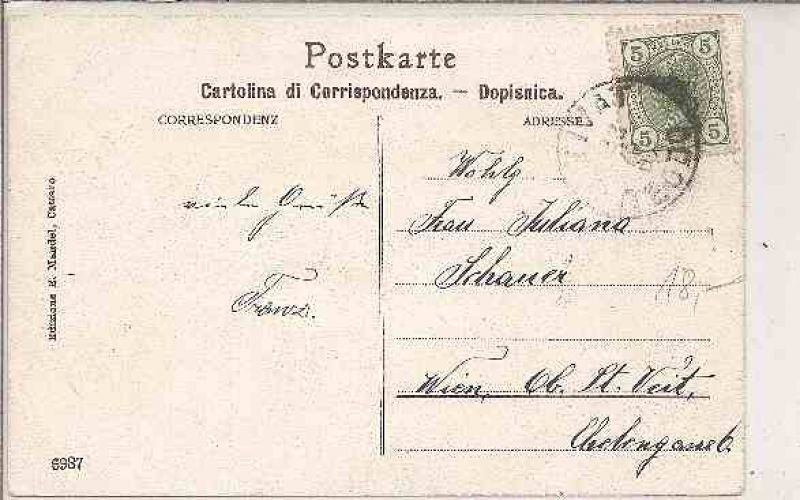 Postkarte
Cartolina di Corrispondenza. — Dopisnica.
CORRESPONDENZ
ADRESSE
5 5
5 5
viele Grüße
Franz.
Wohlg
Frau Juliana
Schauer
18,-
Wien, Ob. St. Veit,
Edizione E. Mandel, Cattaro
6987